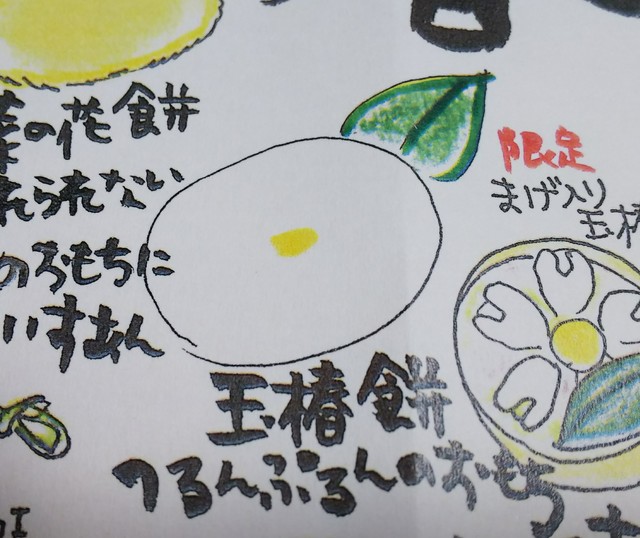 菜の花餅
れられない
のおもちに
いすあん
限定
まげ入り
玉椿
玉椿餅
つるんぷるんのおもち